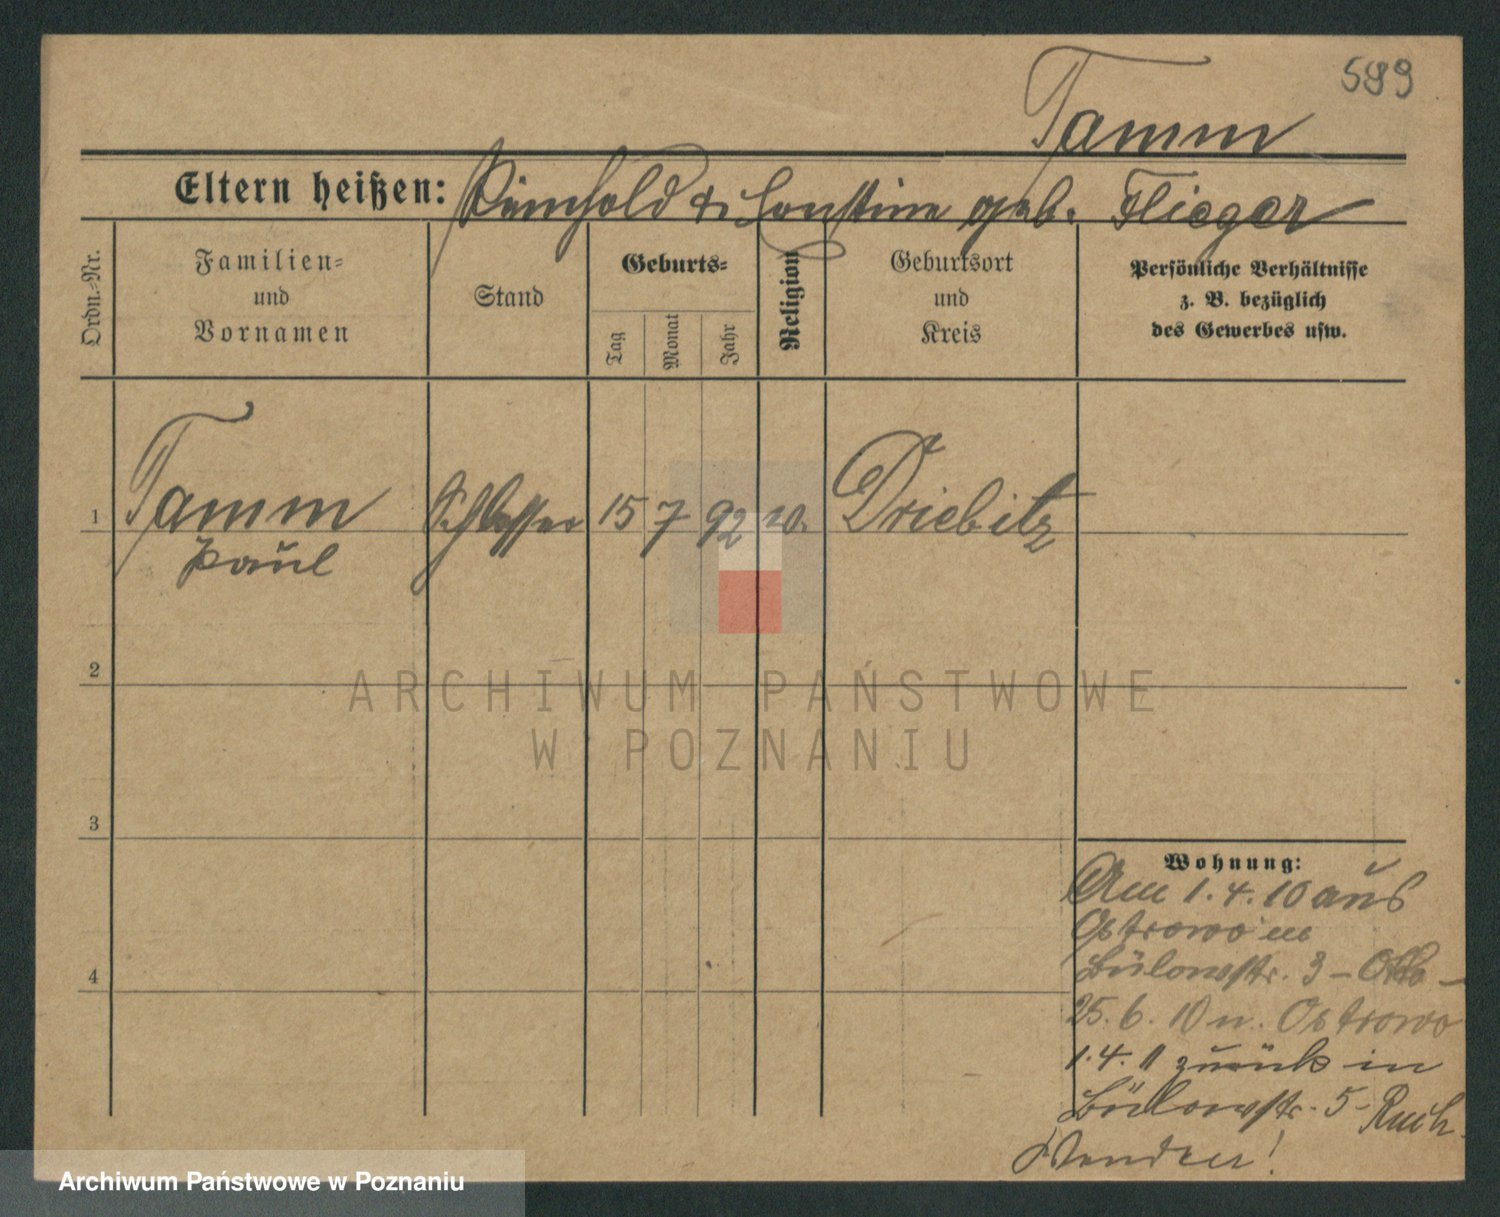 599
Tamm
Eltern heißen: Reinhold & Ernstine geb. Flieger
Ordn.-Nr.
Familien-
und
Vornamen
Stand
Geburts-
Tag
Monat
Jahr
Religion
Geburtsort
und
Kreis
Persönliche Verhältnisse
z. B. bezüglich
des Gewerbes usw.
1 Tamm Schlosser 15 7 92 Driebitz
Paul
2
3
4
Wohnung:
Am 1.4.10 aus
Ostrowo in
Bülowstr. 3 - Otto -
25.6.10 n. Ostrowo
1.4.11 zurück in
Bülowstr. 5
Wenden!
ARCHIWUM PAŃSTWOWE
W POZNANIU
Archiwum Państwowe w Poznaniu